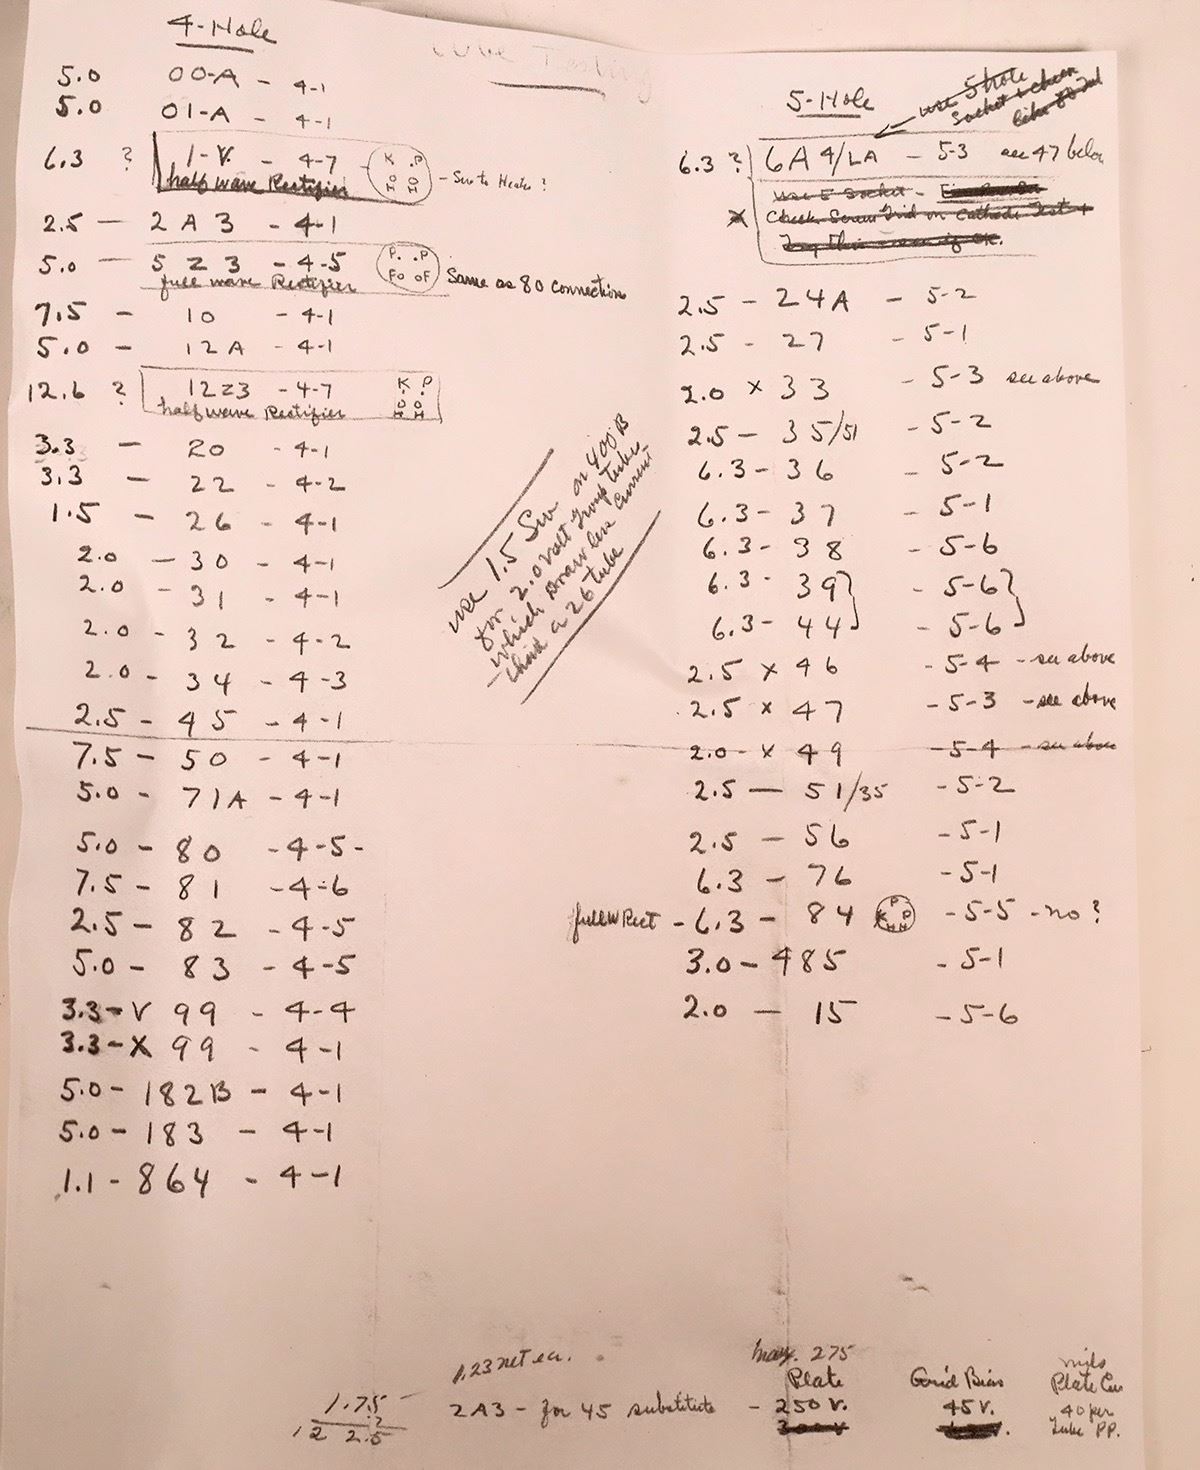 4-Hole
Tube Testing
5.0 00-A - 4-1
5.0 01-A - 4-1
6.3 ? 1-V. - 4-7 K P H H - Sw to Heater ?
half wave Rectifier
2.5 - 2A3 - 4-1
5.0 - 5Z3 - 4-5 P. .P Fo oF Same as 80 connection
full wave Rectifier
7.5 - 10 - 4-1
5.0 - 12A - 4-1
12.6 ? 12Z3 - 4-7 K P H H
half wave Rectifier
3.3 - 20 - 4-1
3.3 - 22 - 4-2
1.5 - 26 - 4-1
2.0 - 30 - 4-1
2.0 - 31 - 4-1
2.0 - 32 - 4-2
2.0 - 34 - 4-3
2.5 - 45 - 4-1
7.5 - 50 - 4-1
5.0 - 71A - 4-1
5.0 - 80 - 4-5-
7.5 - 81 - 4-6
2.5 - 82 - 4-5
5.0 - 83 - 4-5
3.3 - V 99 - 4-4
3.3 - X 99 - 4-1
5.0 - 182B - 4-1
5.0 - 183 - 4-1
1.1 - 864 - 4-1
use 1.5 Sw on 400B
for 2.0 volt group tubes
which draw less current
than a 26 tube
5-Hole
use 5 hole
Socket + check
like
6.3 ? 6A4/LA - 5-3 see 47 below
use 5 Socket -
x Check Screen Grid on Cathode Test +
5-2
2.5 - 24A - 5-2
2.5 - 27 - 5-1
2.0 x 33 - 5-3 see above
2.5 - 35/51 - 5-2
6.3 - 36 - 5-2
6.3 - 37 - 5-1
6.3 - 38 - 5-6
6.3 - 39 } - 5-6 }
6.3 - 44 } - 5-6 }
2.5 x 46 - 5-4 - see above
2.5 x 47 - 5-3 - see above
2.0 - x 49 - 5-4 - see above
2.5 - 51/35 - 5-2
2.5 - 56 - 5-1
6.3 - 76 - 5-1
full W Rect - 6.3 - 84 P K P H H - 5-5 - no ?
3.0 - 485 - 5-1
2.0 - 15 - 5-6
1.23 net ea.
1.75
2
2.5
max. 275
Plate Grid Bias mils Plate Cur
2A3 - for 45 substitute - 250 V. 45 V. 40 per
300 V Tube PP.